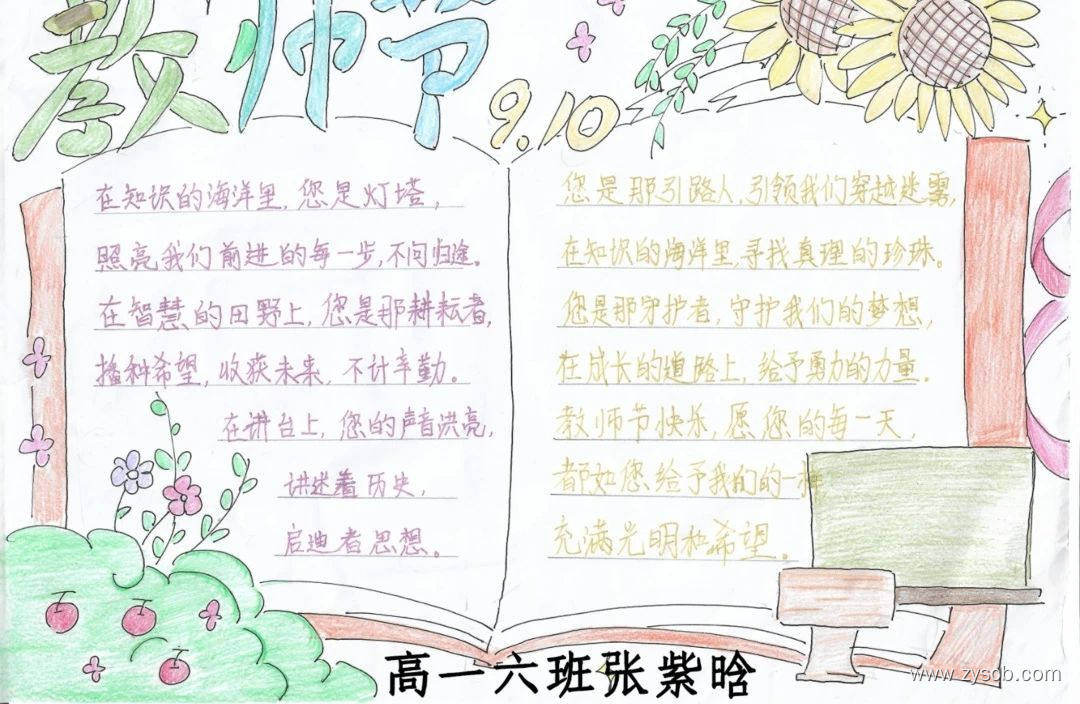 教师节
9.10
在知识的海洋里,您是灯塔,
照亮我们前进的每一步,不问归途。
在智慧的田野上,您是那耕耘者,
播种希望,收获未来,不计辛勤。
在讲台上,您的声音洪亮,
讲述着历史,
启迪者思想。
您是那引路人,引领我们穿越迷雾,
在知识的海洋里,寻找真理的珍珠。
您是那守护者,守护我们的梦想,
在成长的道路上,给予勇力的力量。
教师节快乐,愿您的每一天,
都如您给予我们的一种
充满光明和希望。
高一六班张紫晗
www.zyscb.com